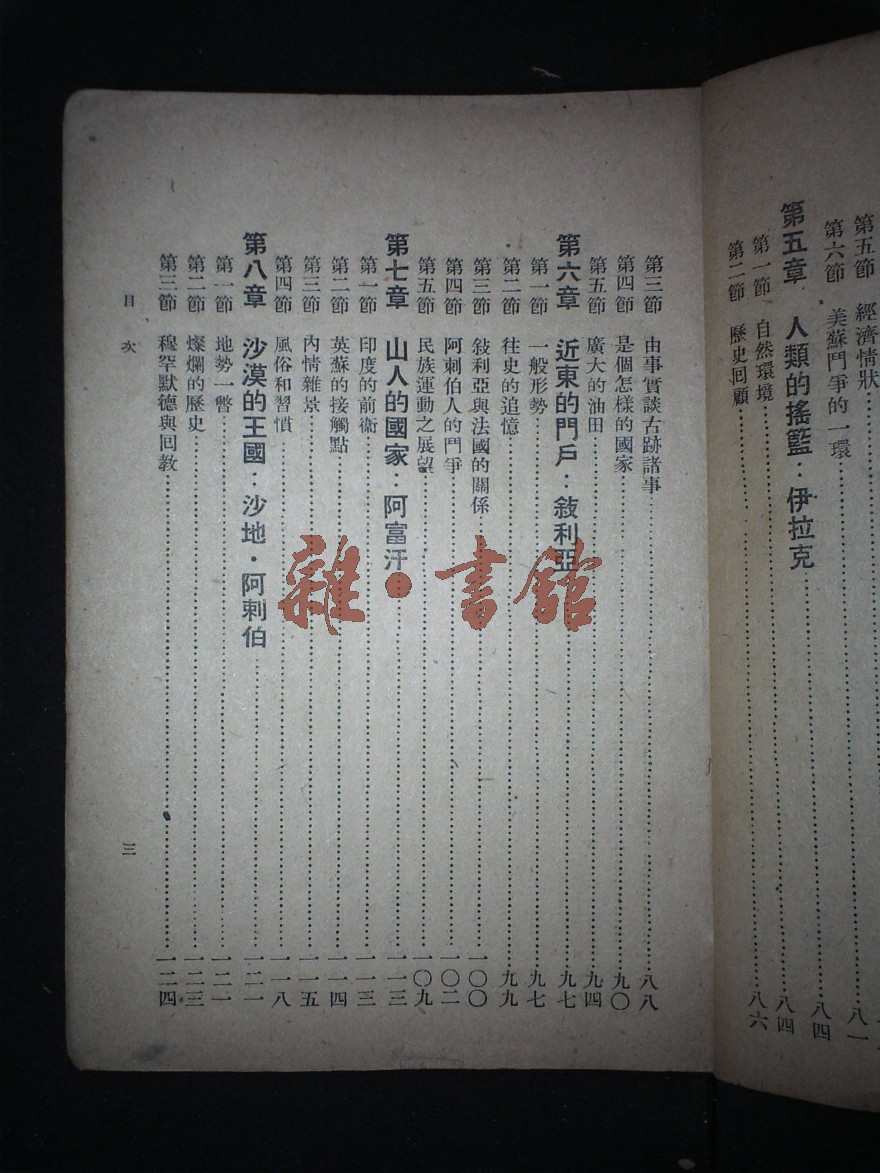 第五節 經濟情狀……八一
第六節 美蘇鬥爭的一環
第五章 人類的搖籃：伊拉克……八四
第一節 自然環境……八四
第二節 歷史回顧……八六
第三節 由事實談古跡諸事……八八
第四節 是個怎樣的國家……九〇
第五節 廣大的油田……九四
第六章 近東的門戶：敍利亞……九七
第一節 一般形勢……九七
第二節 往史的追憶……九九
第三節 敍利亞與法國的關係……一〇〇
第四節 阿剌伯人的鬥爭……一〇二
第五節 民族運動之展望……一〇九
第七章 山人的國家：阿富汗……一一三
第一節 印度的前衞……一一三
第二節 英蘇的接觸點……一一四
第三節 內情雜景……一一五
第四節 風俗和習慣……一一八
第八章 沙漠的王國：沙地·阿剌伯……一二一
第一節 地勢一瞥……一二一
第二節 燦爛的歷史……一二三
第三節 穆罕默德與回教……一二四
目次
三
雜·書館